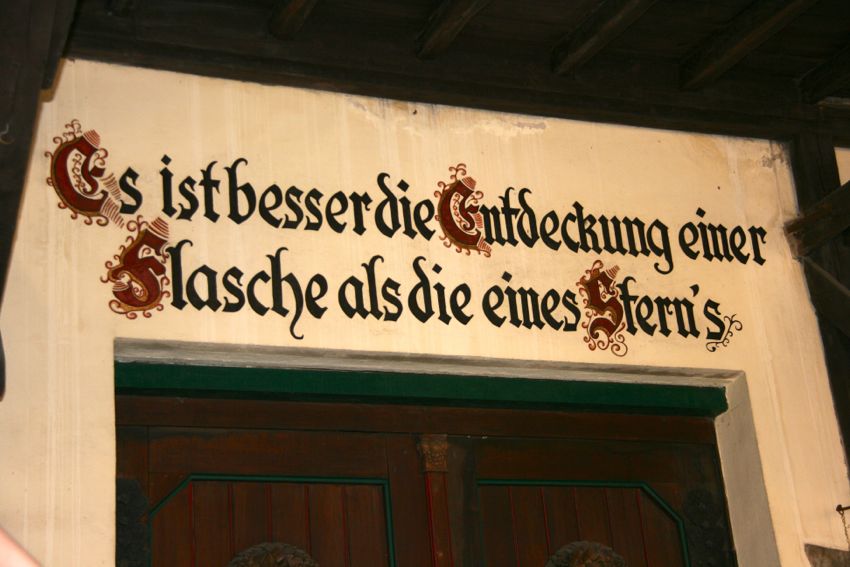 Es ist besser die Entdeckung einer
Flasche als die eines Stern's